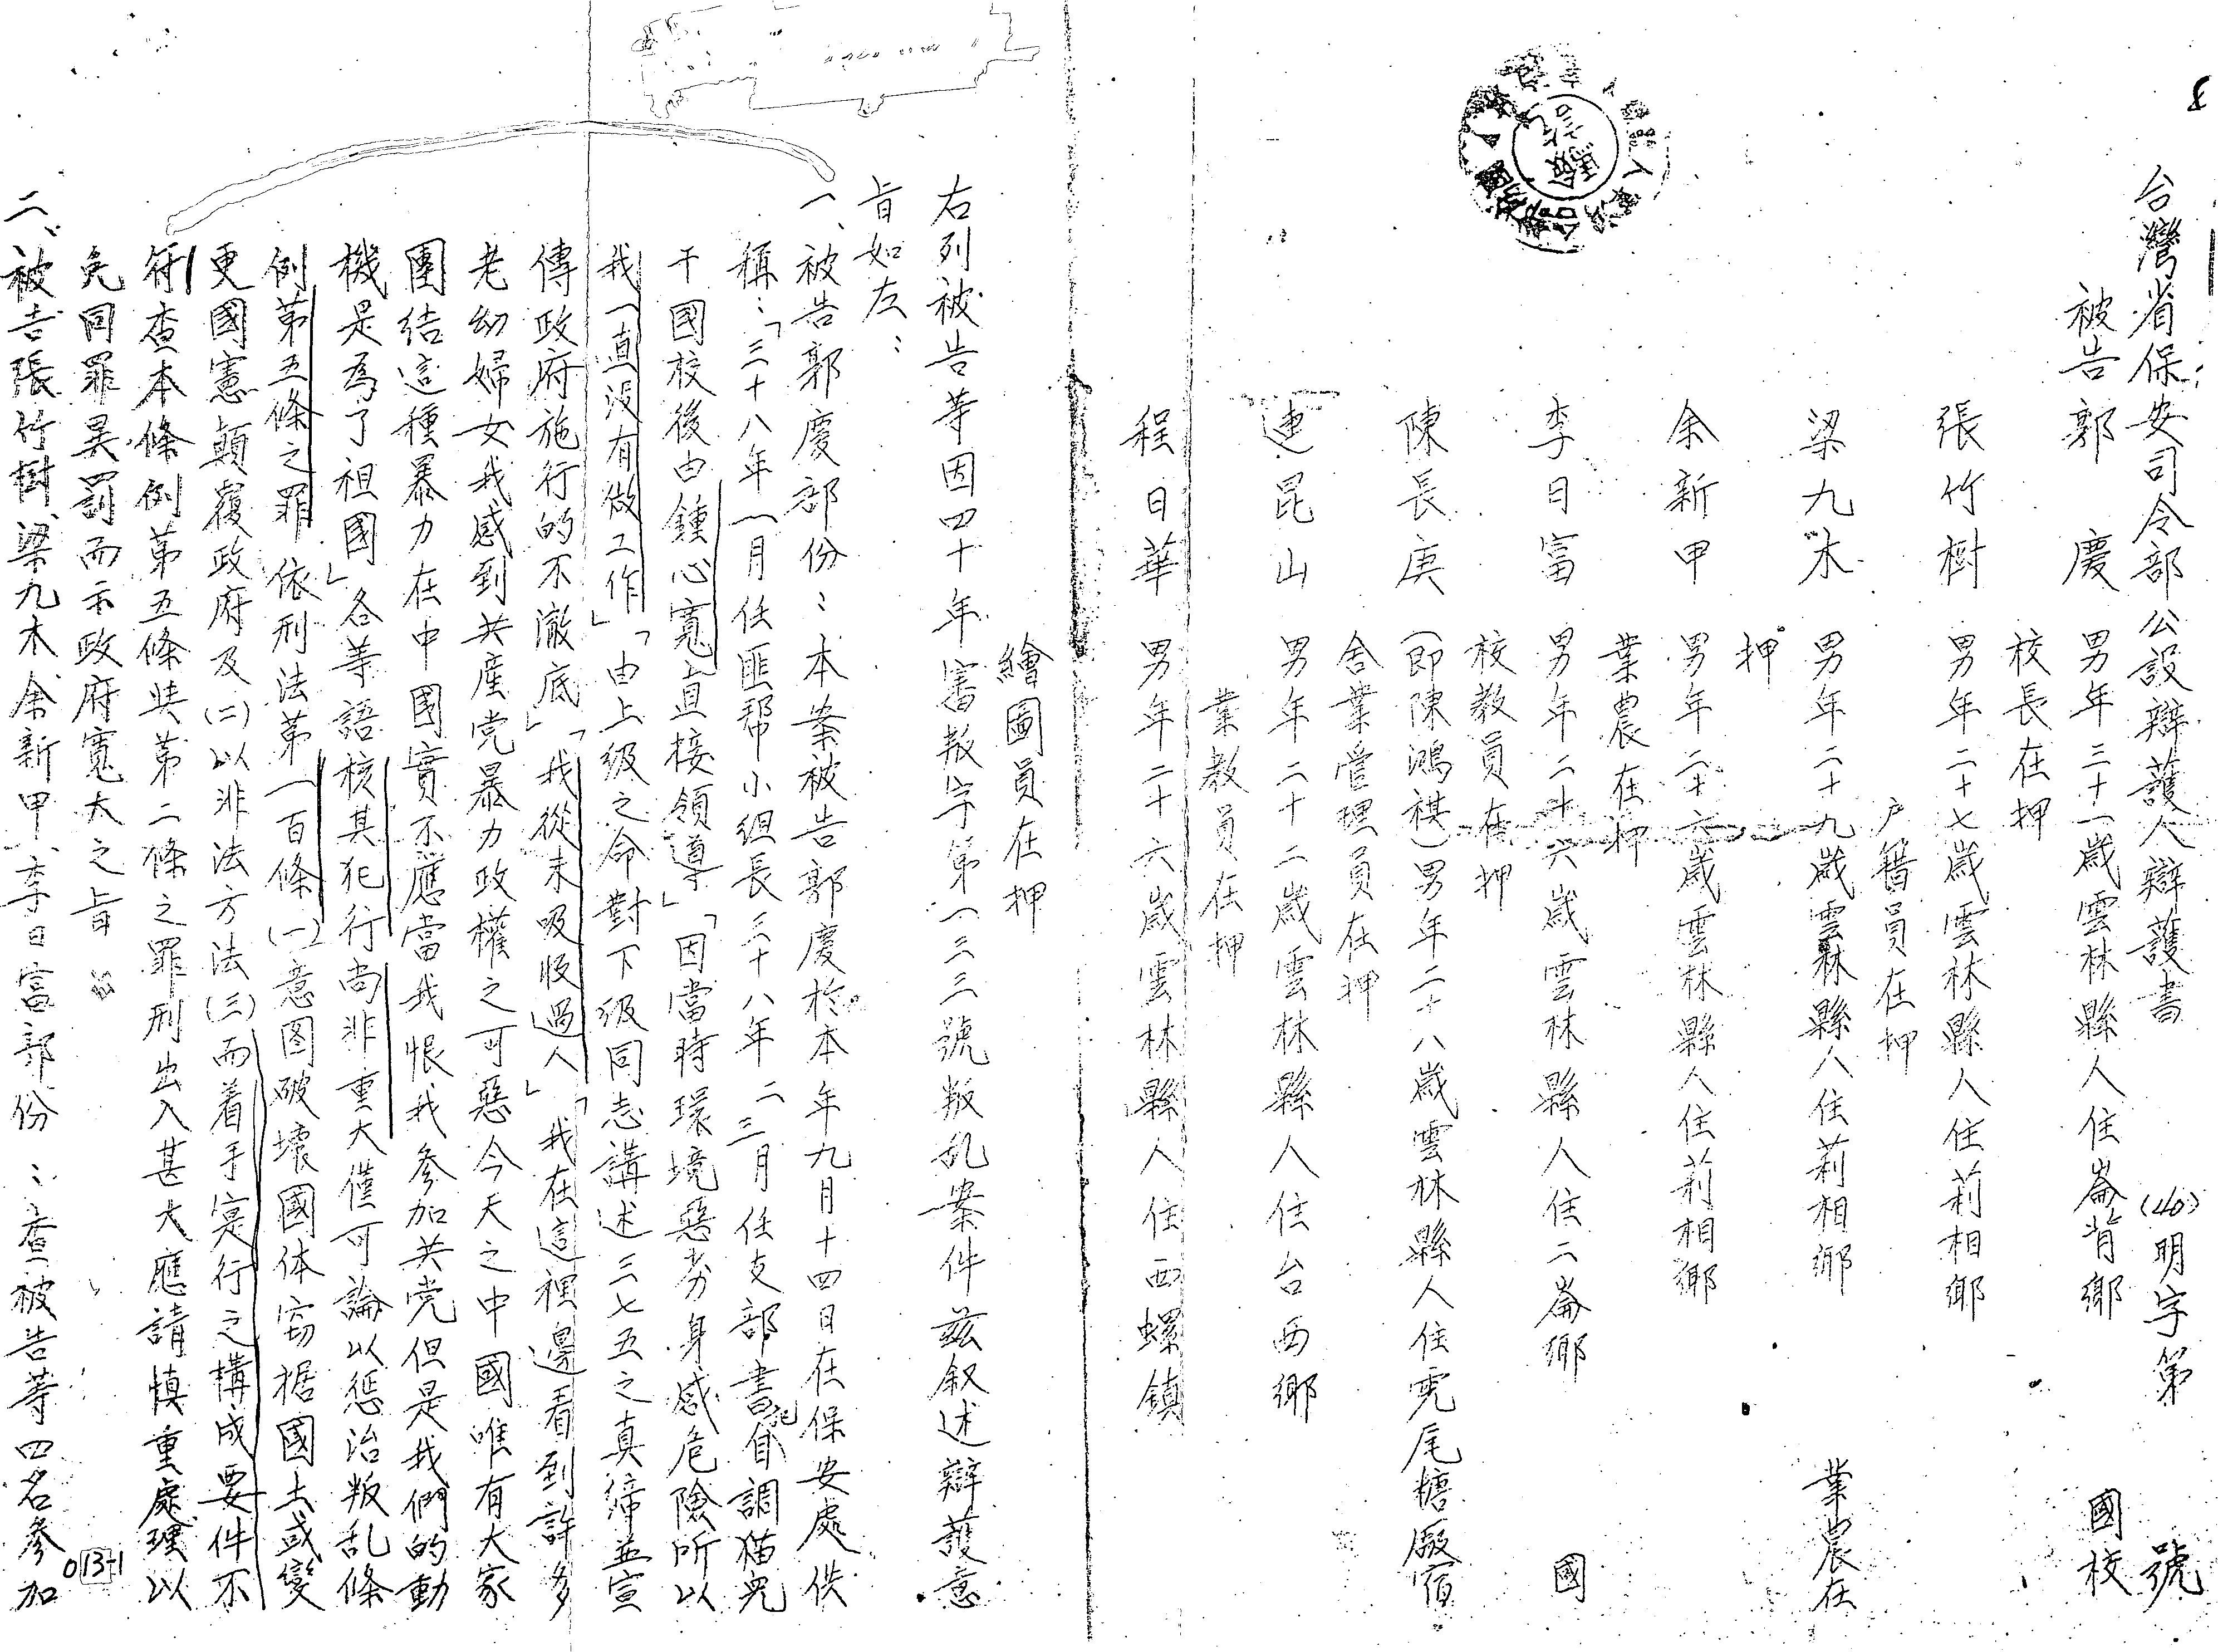 8
台灣省保安司令部公設辯護人辯護書　(40)明字第　號
被告　郭　慶　男年三十一歲雲林縣人住崙背鄉　國校
校長在押
張竹樹　男年二十七歲雲林縣人住莿相鄉
户籍員在押
梁九木　男年二十九歲雲林縣人住莿相鄉　業農在
押
余新甲　男年二十六歲雲林縣人住莿相鄉
業農在押
李日富　男年二十六歲雲林縣人住二崙鄉　國
校教員在押
陳長庚　(即陳鴻祺)男年二十八歲雲林縣人住虎尾糖廠宿
舍業管理員在押
連昆山　男年二十二歲雲林縣人住台西鄉
業教員在押
程日華　男年二十六歲雲林縣人住西螺鎮
繪圖員在押
右列被告等因四十年審叛字第一三三號叛乱案件茲叙述辯護意
旨如左：
一、被告郭慶部份：本案被告郭慶於本年九月十四日在保安處供
稱：「三十八年一月任匪幫小組長三十八年二三月任支部書記自調猫兒
干國校後由鍾心寬直接領導」「因當時環境惡劣身感危險所以
我一直沒有做工作」「由上级之命對下级同志講述三七五之真締並宣
傳政府施行的不澈底」「我從未吸收過人」「我在這裡邊看到許多
老幼婦女我感到共産党暴力政權之可惡今天之中國唯有大家
團结這種暴力在中國實不應當我恨我参加共党但是我們的動
機是為了祖國」各等語核其犯行尚非重大僅可論以惩治叛乱條
例第五條之罪依刑法第一百條(一)意图破壞國体窃据國土或變
更國憲顛覆政府及(二)以非法方法(三)而着手実行之構成要件不
符查本條例第五條與第二條之罪刑出入甚大應請慎重處理以
免同罪異罰而示政府寬大之旨
二、被告張竹樹梁九木余新甲李日富部份：查被告等四名參加
013-1